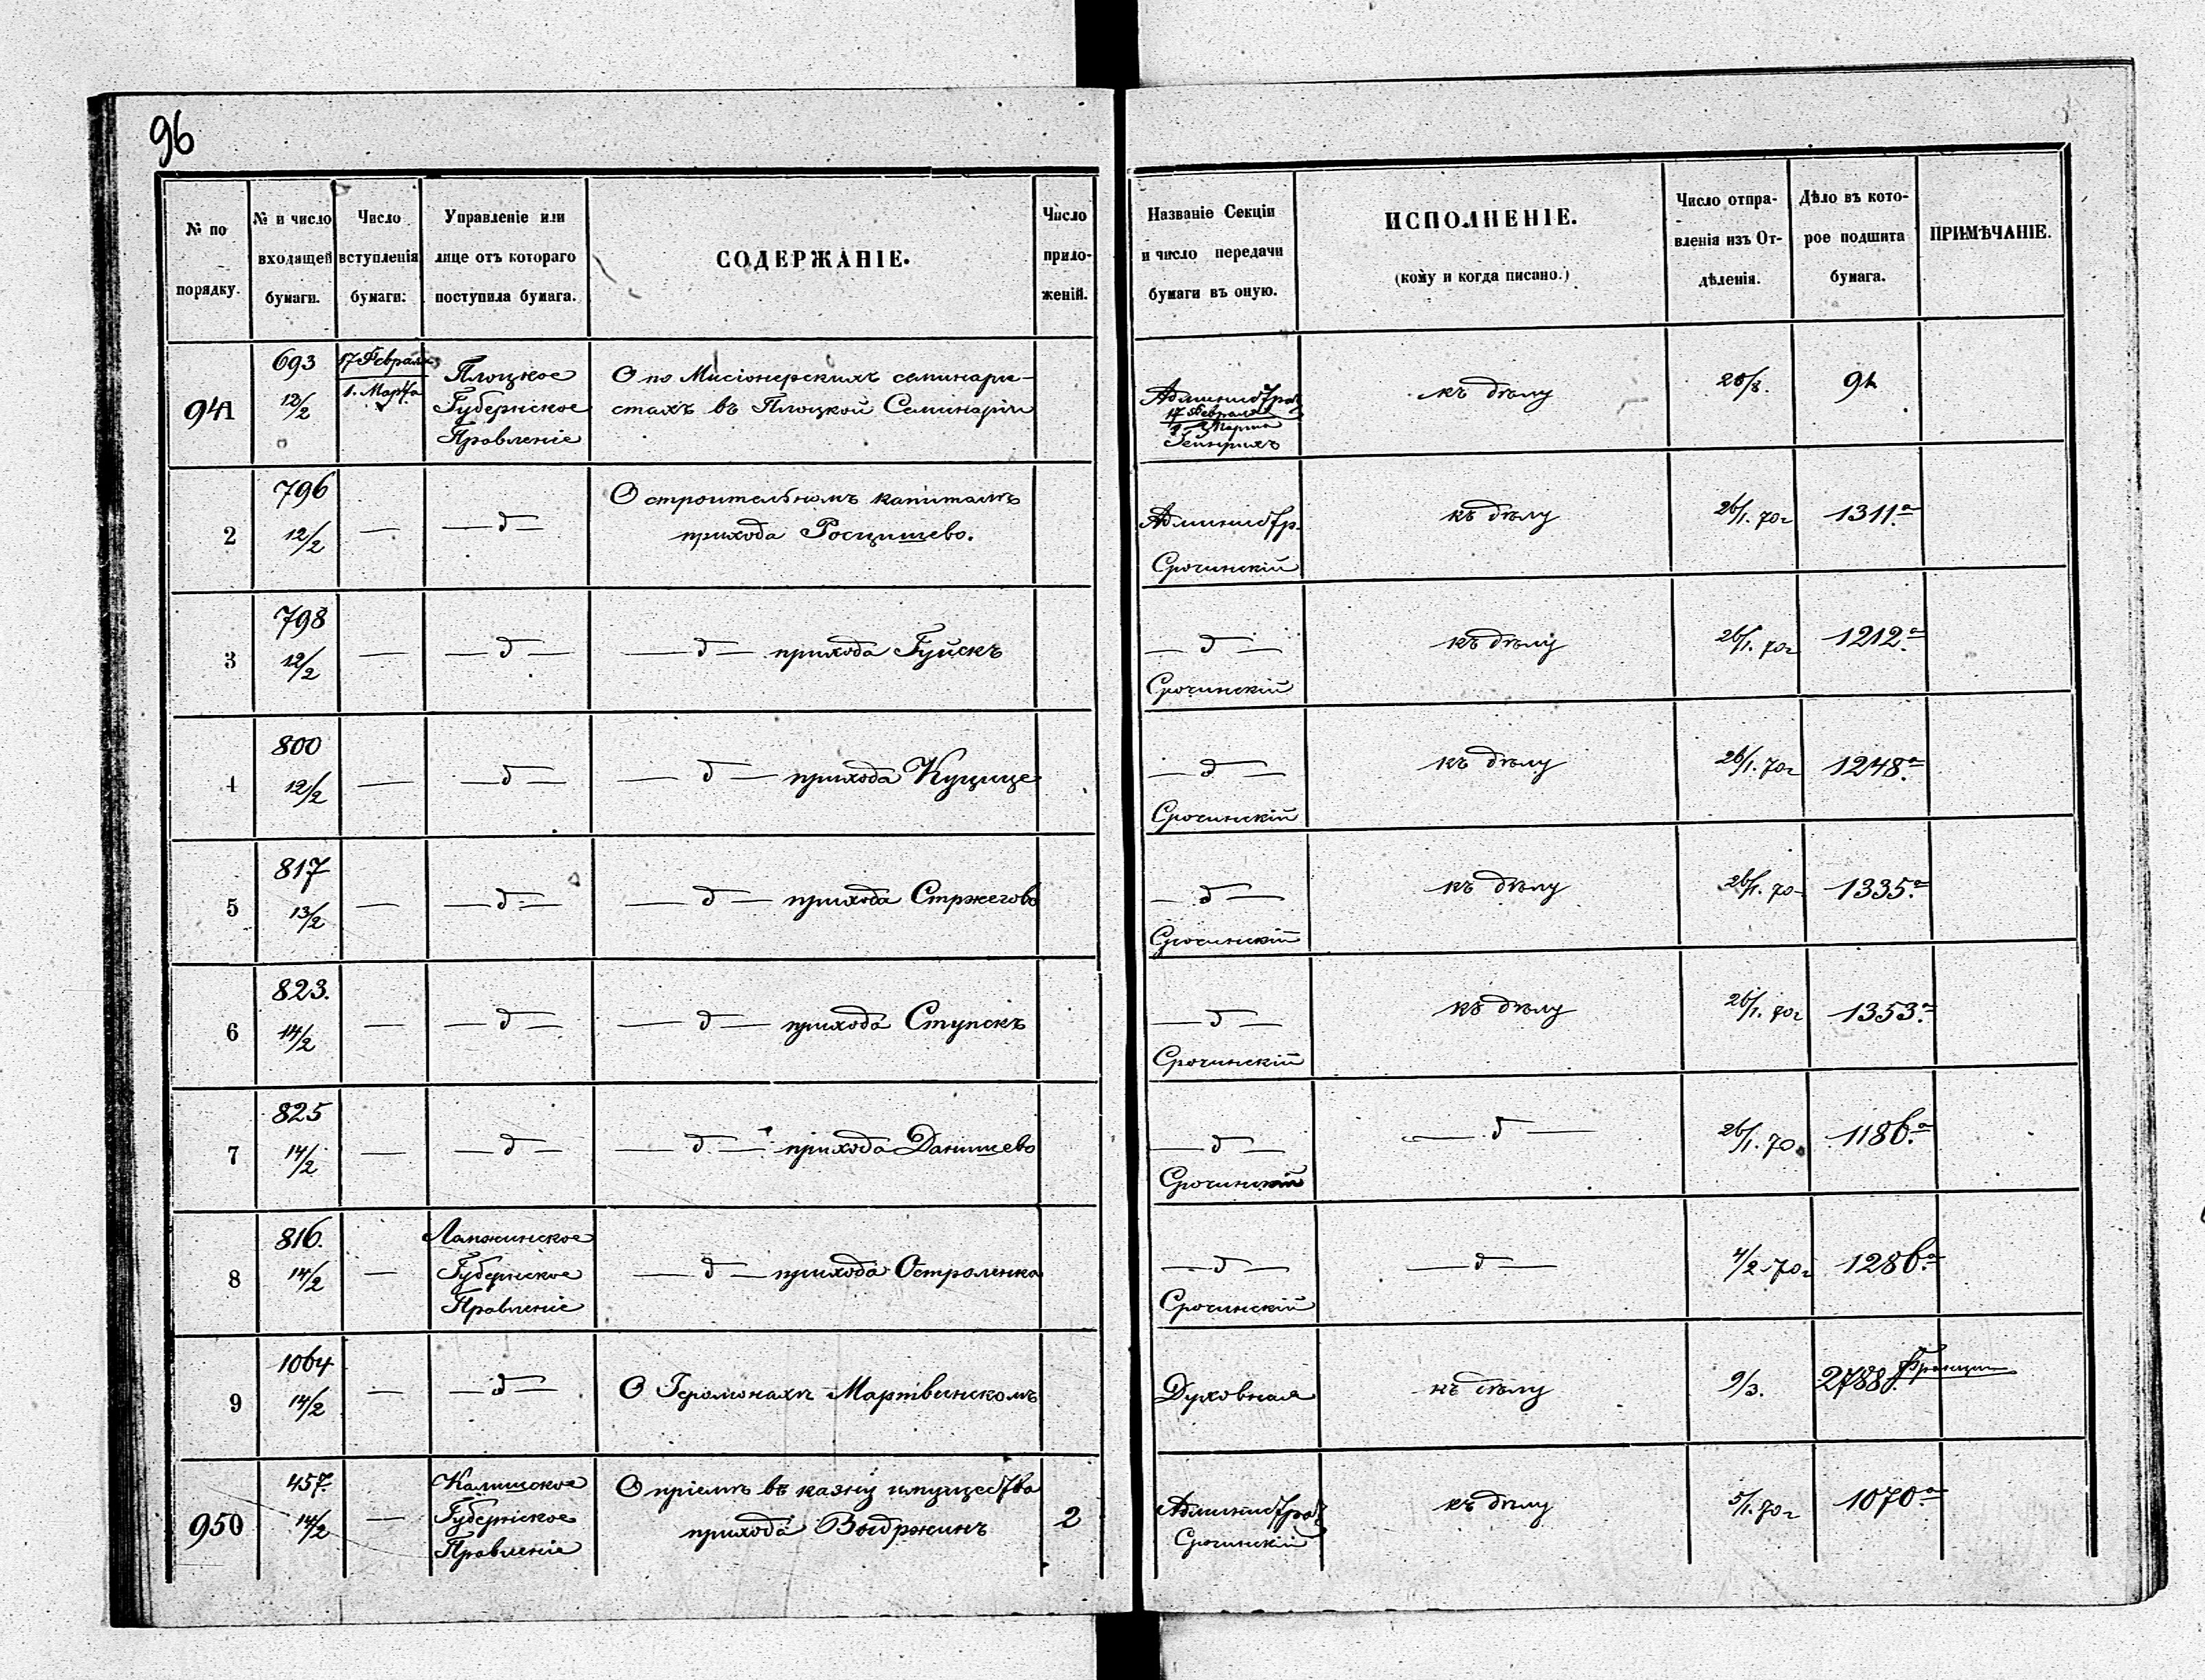 96
№ по порядку.
№ и число входящей бумаги.
Число вступленія бумаги:
Управленіе или лице отъ котораго поступила бумага.
СОДЕРЖАНІЕ.
Число приложеній.
Названіе Секціи и число передачи бумаги въ оную.
ИСПОЛНЕНІЕ.
(кому и когда писано.)
Число отправленія изъ Отдѣленія.
Дѣло въ которое подшита бумага.
ПРИМѢЧАНІЕ.
941
693
12/2
17 Февраля
1. Марта
Плоцкое
Губернское
Правленіе
О по Мисіонерскихъ семинари-
стахъ въ Плоцкой Семинаріи
Администрат
17 Февраля
1 Марта
къ дѣлу
20/8.
2
796
12/2
—
— д —
О строительномъ капиталѣ
прихода Росцишево.
Администр.
Срочинскій
къ дѣлу
26/1. 70г
1311.а
3
798
12/2
—
— д —
— д — прихода Гуйскъ
— д —
Срочинскій
къ дѣлу
26/1. 70г
1212.а
4
800
12/2
—
— д —
— д — прихода Куцице
— д —
Срочинскій
къ дѣлу
26/1. 70г
1248.а
5
817
13/2
—
— д —
— д — прихода Стржегово
— д —
Срочинскій
къ дѣлу
26/1. 70
1335.а
6
823.
14/2
—
— д —
— д — прихода Ступскъ
— д —
Срочинскій
къ дѣлу
26/1. 70г
1353.а
7
825
14/2
—
— д —
— д — прихода Данишево
— д —
Срочинскій
— д —
26/1. 70
1186.а
8
816.
14/2
—
Ломжинское
Губернское
Правленіе
— д — прихода Остроленка
— д —
Срочинскій
— д —
4/2 70г
1286.а
9
1064
14/2
—
— д —
О Іеромонахѣ Мартвинскомъ
Духовная
къ дѣлу
9/3.
2788.
950
457.
14/2
—
Калишское
Губернское
Правленіе
О пріемѣ въ казну имущества
прихода Выдржинъ
2
Администрат
Срочинскій
къ дѣлу
5/1. 70г
1070а